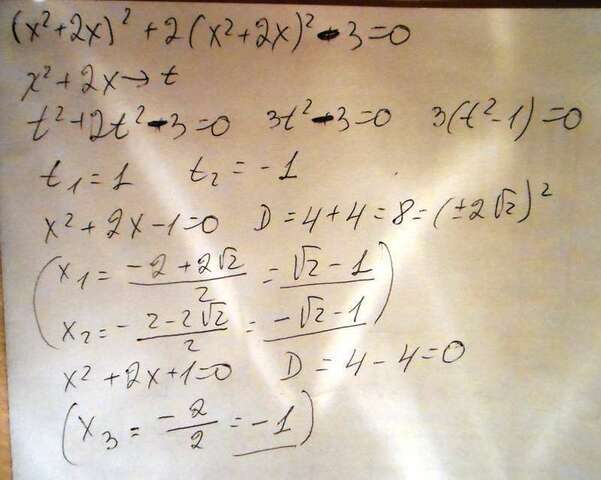 (x²+2x)² + 2(x²+2x)² - 3 = 0
x²+2x → t
t²+2t²-3=0 3t²-3=0 3(t²-1)=0
t₁=1 t₂=-1
x²+2x-1=0 D=4+4=8=(±2√2)²
(x₁ = (-2+2√2)/2 = √2-1
x₂ = -(2-2√2)/2 = -√2-1)
x²+2x+1=0 D=4-4=0
(x₃ = -2/2 = -1)